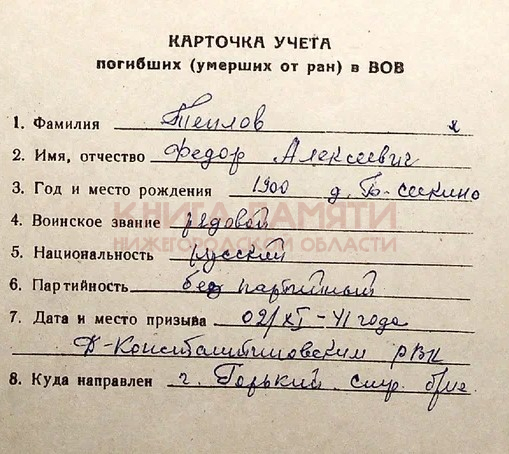 КАРТОЧКА УЧЕТА
погибших (умерших от ран) в ВОВ
1. Фамилия Теплов
2. Имя, отчество Федор Алексеевич
3. Год и место рождения 1900 д. Б-
КНИГА ПАМЯТИ
4. Воинское звание рядовой
НИЖЕГОРОДСКОЙ ОБЛАСТИ
5. Национальность русский
6. Партийность беспартийный
7. Дата и место призыва 02/XI-41 года
Д-Константиновским РВК
8. Куда направлен г. Горький